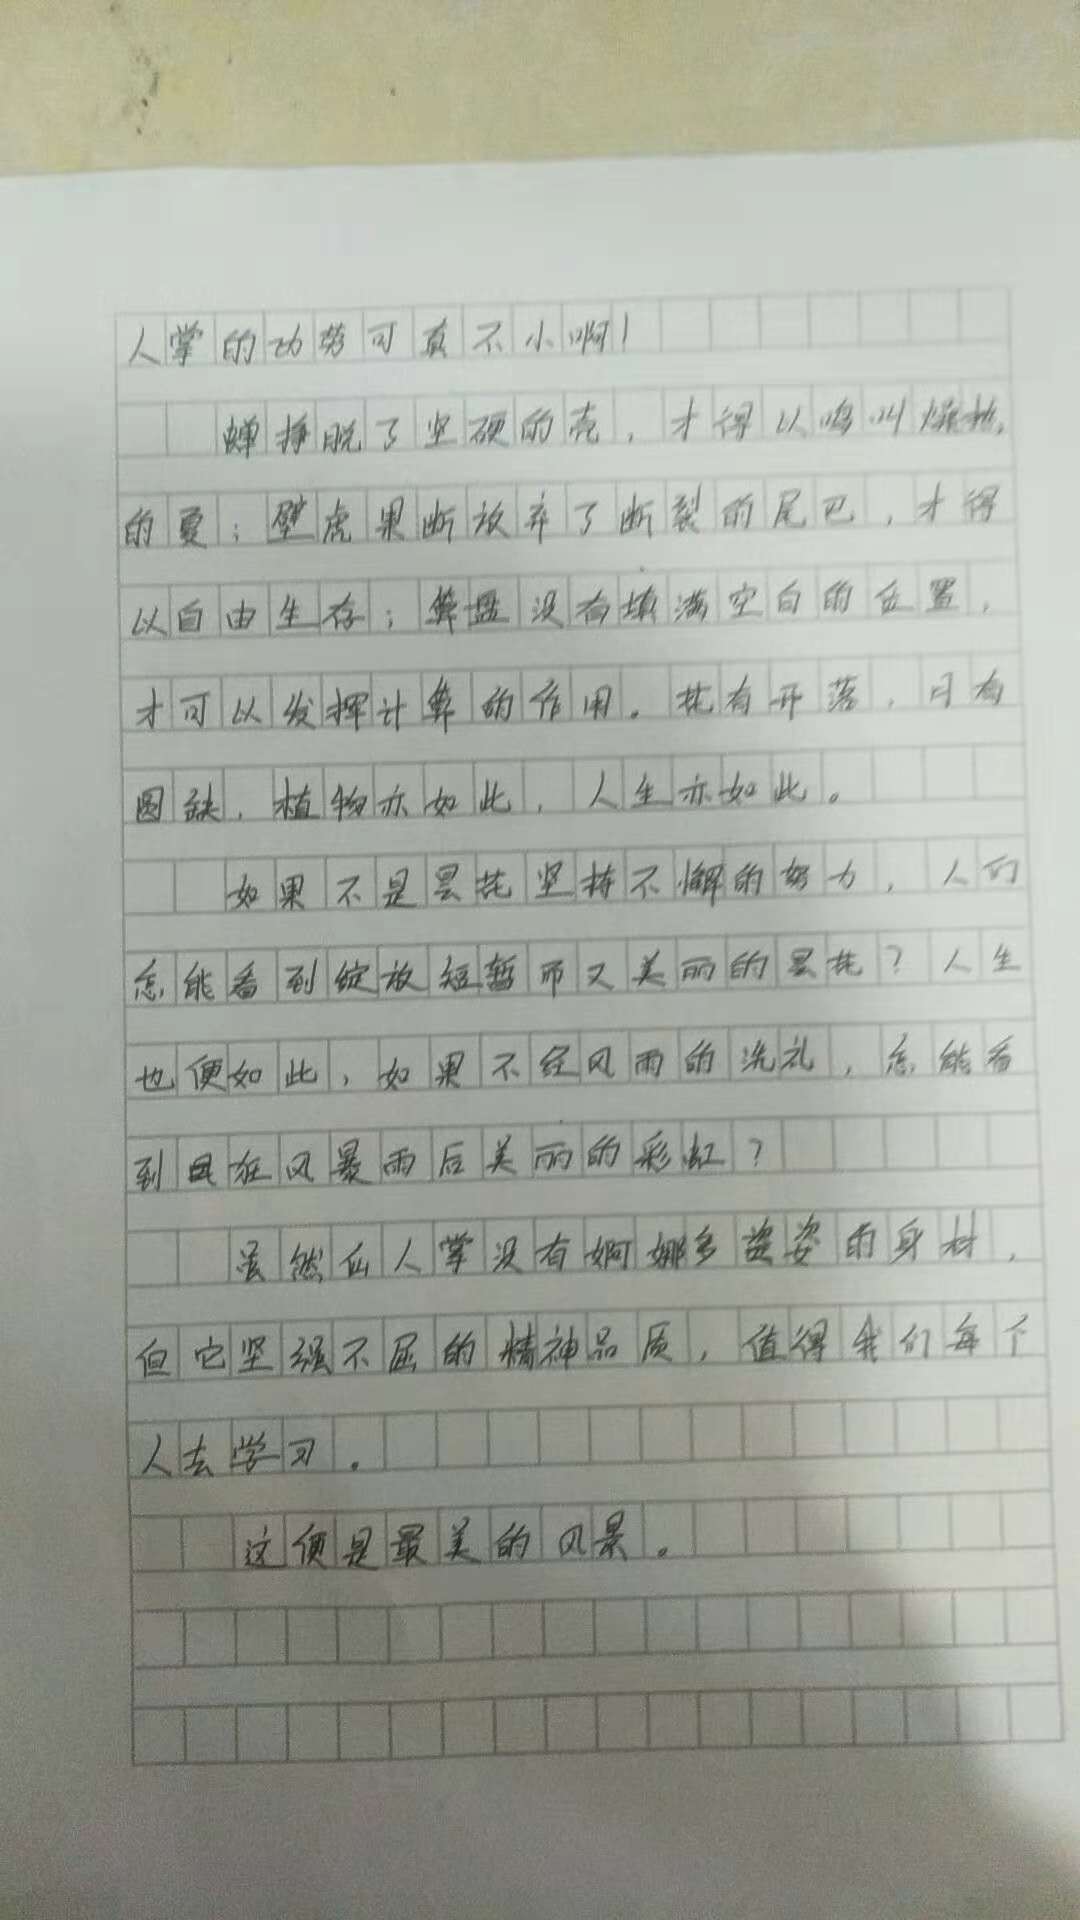 人掌的功劳可真不小啊!
蝉挣脱了坚硬的壳，才得以鸣叫燥热
的夏；壁虎果断放弃了断裂的尾巴，才得
以自由生存；算盘没有填满空白的位置，
才可以发挥计算的作用。花有开落，月有
圆缺，植物亦如此，人生亦如此。
如果不是昙花坚持不懈的努力，人们
怎能看到绽放短暂而又美丽的昙花？人生
也便如此，如果不经风雨的洗礼，怎能看
到狂风暴雨后美丽的彩虹？
虽然仙人掌没有婀娜多姿姿的身材，
但它坚强不屈的精神品质，值得我们每个
人去学习。
这便是最美的风景。